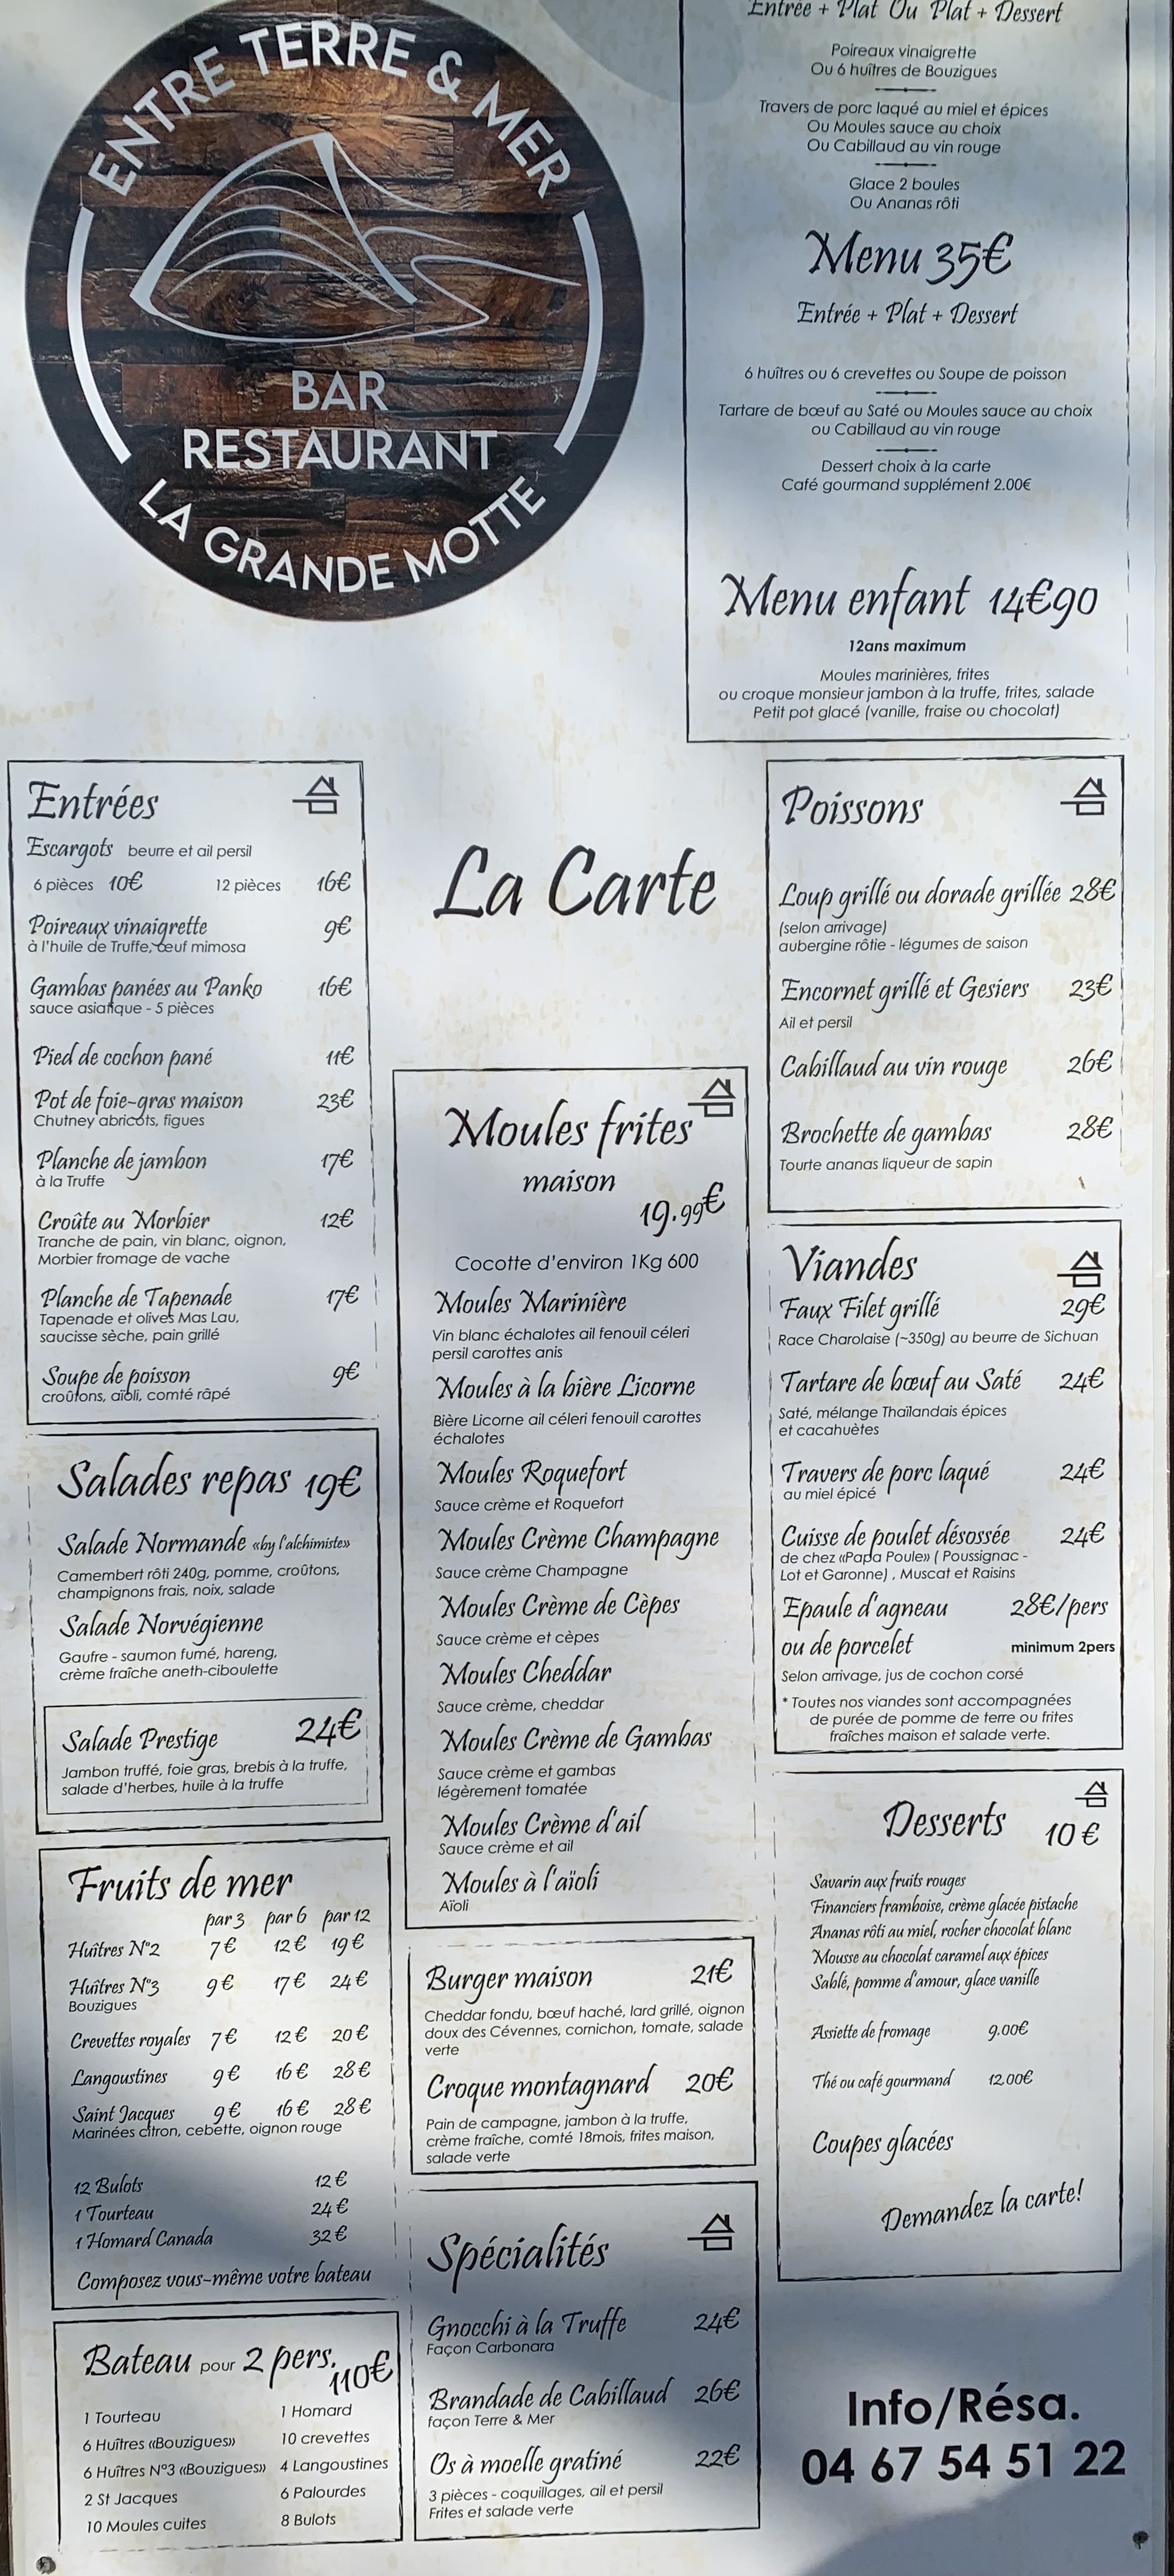 ENTRE TERRE & MER
BAR
RESTAURANT
LA GRANDE MOTTE
Entrée + Plat Ou Plat + Dessert
Poireaux vinaigrette
Ou 6 huîtres de Bouzigues
Travers de porc laqué au miel et épices
Ou Moules sauce au choix
Ou Cabillaud au vin rouge
Glace 2 boules
Ou Ananas rôti
Menu 35€
Entrée + Plat + Dessert
6 huîtres ou 6 crevettes ou Soupe de poisson
Tartare de bœuf au Saté ou Moules sauce au choix
ou Cabillaud au vin rouge
Dessert choix à la carte
Café gourmand supplément 2.00€
Menu enfant 14€90
12ans maximum
Moules marinières, frites
ou croque monsieur jambon à la truffe, frites, salade
Petit pot glacé (vanille, fraise ou chocolat)
La Carte
Entrées
Escargots beurre et ail persil
6 pièces 10€ 12 pièces 16€
Poireaux vinaigrette 9€
à l'huile de Truffe, œuf mimosa
Gambas panées au Panko 16€
sauce asiatique - 5 pièces
Pied de cochon pané 11€
Pot de foie-gras maison 23€
Chutney abricots, figues
Planche de jambon 17€
à la Truffe
Croûte au Morbier 12€
Tranche de pain, vin blanc, oignon,
Morbier fromage de vache
Planche de Tapenade 17€
Tapenade et olives Mas Lau,
saucisse sèche, pain grillé
Soupe de poisson 9€
croûtons, aïoli, comté râpé
Salades repas 19€
Salade Normande «by l'alchimiste»
Camembert rôti 240g, pomme, croûtons,
champignons frais, noix, salade
Salade Norvégienne
Gaufre - saumon fumé, hareng,
crème fraîche aneth-ciboulette
Salade Prestige 24€
Jambon truffé, foie gras, brebis à la truffe,
salade d'herbes, huile à la truffe
Fruits de mer
par 3 par 6 par 12
Huîtres N°2 7€ 12€ 19€
Huîtres N°3 9€ 17€ 24€
Bouzigues
Crevettes royales 7€ 12€ 20€
Langoustines 9€ 16€ 28€
Saint Jacques 9€ 16€ 28€
Marinées citron, cebette, oignon rouge
12 Bulots 12€
1 Tourteau 24€
1 Homard Canada 32€
Composez vous-même votre bateau
Bateau pour 2 pers. 110€
1 Tourteau 1 Homard
6 Huîtres «Bouzigues» 10 crevettes
6 Huîtres N°3 «Bouzigues» 4 Langoustines
2 St Jacques 6 Palourdes
10 Moules cuites 8 Bulots
Moules frites
maison
19.99€
Cocotte d'environ 1Kg 600
Moules Marinière
Vin blanc échalotes ail fenouil céleri
persil carottes anis
Moules à la bière Licorne
Bière Licorne ail céleri fenouil carottes
échalotes
Moules Roquefort
Sauce crème et Roquefort
Moules Crème Champagne
Sauce crème Champagne
Moules Crème de Cèpes
Sauce crème et cèpes
Moules Cheddar
Sauce crème, cheddar
Moules Crème de Gambas
Sauce crème et gambas
légèrement tomatée
Moules Crème d'ail
Sauce crème et ail
Moules à l'aïoli
Aïoli
Burger maison 21€
Cheddar fondu, bœuf haché, lard grillé, oignon
doux des Cévennes, cornichon, tomate, salade
verte
Croque montagnard 20€
Pain de campagne, jambon à la truffe,
crème fraîche, comté 18mois, frites maison,
salade verte
Spécialités
Gnocchi à la Truffe 24€
Façon Carbonara
Brandade de Cabillaud 26€
façon Terre & Mer
Os à moelle gratiné 22€
3 pièces - coquillages, ail et persil
Frites et salade verte
Poissons
Loup grillé ou dorade grillée 28€
(selon arrivage)
aubergine rôtie - légumes de saison
Encornet grillé et Gesiers 23€
Ail et persil
Cabillaud au vin rouge 26€
Brochette de gambas 28€
Tourte ananas liqueur de sapin
Viandes
Faux Filet grillé 29€
Race Charolaise (~350g) au beurre de Sichuan
Tartare de bœuf au Saté 24€
Saté, mélange Thaïlandais épices
et cacahuètes
Travers de porc laqué 24€
au miel épicé
Cuisse de poulet désossée 24€
de chez «Papa Poule» ( Poussignac -
Lot et Garonne) , Muscat et Raisins
Epaule d'agneau 28€/pers
ou de porcelet minimum 2pers
Selon arrivage, jus de cochon corsé
* Toutes nos viandes sont accompagnées
de purée de pomme de terre ou frites
fraîches maison et salade verte.
Desserts 10€
Savarin aux fruits rouges
Financiers framboise, crème glacée pistache
Ananas rôti au miel, rocher chocolat blanc
Mousse au chocolat caramel aux épices
Sablé, pomme d'amour, glace vanille
Assiette de fromage 9.00€
Thé ou café gourmand 12.00€
Coupes glacées
Demandez la carte!
Info/Résa.
04 67 54 51 22